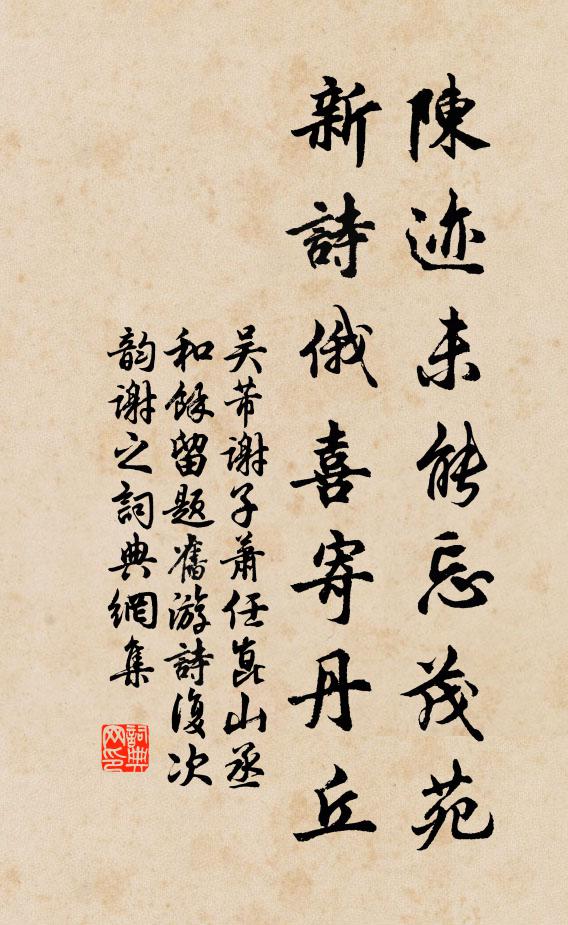 陳迹未能忘茂苑
新詩俄喜寄丹丘
吴芾謝子蕭任崑山丞
和餘留題舊游詩復次
韵謝之詞典網集
詞典
网印